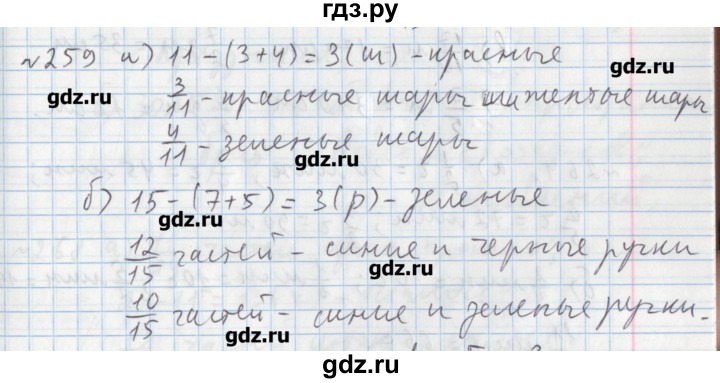 гдз.ру
№259 а) 11-(3+4)=3(ш)-красные
gdz.ru
3/11 - красные шары или желтые шары
gdz.ru gdz.ru
4/11 - зеленые шары
gdz.ru
б) 15-(7+5)=3(р)-зеленые
gdz.ru
12/15 частей - синие и черные ручки
gdz.ru gdz.ru
10/15 частей - синие и зеленые ручки.
gdz.ru
gdz.ru